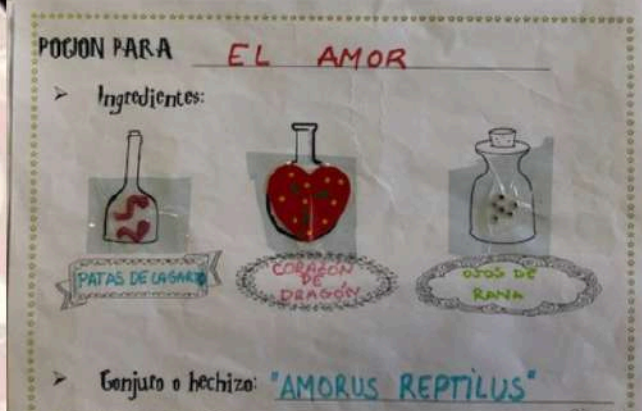 POCION PARA EL AMOR
Ingredientes:
PATAS DE LAGARTO
CORAZÓN DE DRAGÓN
OJOS DE RANA
Conjuro o hechizo: "AMORUS REPTILUS"